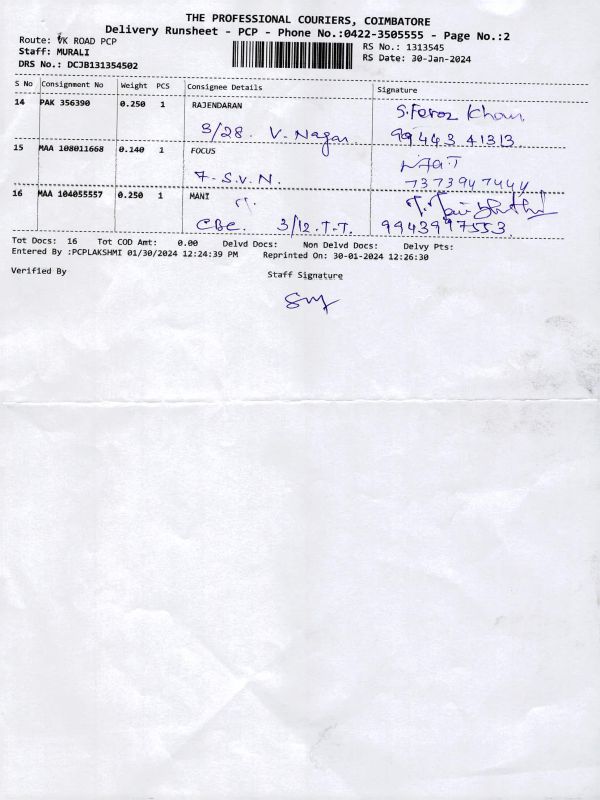 THE PROFESSIONAL COURIERS, COIMBATORE
Delivery Runsheet - PCP - Phone No.:0422-3505555 - Page No.:2
Route: VK ROAD PCP
RS No.: 1313545
Staff: MURALI
RS Date: 30-Jan-2024
DRS No.: DCJB131354502
S No Consignment No Weight PCS Consignee Details Signature
14 PAK 356390 0.250 1 RAJENDARAN S. Feroz Khan
3/28. V. Nagar 99443 41313
15 MAA 108011668 0.140 1 FOCUS
7. S.V.N. 7373947444
16 MAA 104055557 0.250 1 MANI
CBE. 3/12. T.T. 9943997553
Tot Docs: 16 Tot COD Amt: 0.00 Delvd Docs: Non Delvd Docs: Delvy Pts:
Entered By :PCPLAKSHMI 01/30/2024 12:24:39 PM Reprinted On: 30-01-2024 12:26:30
Verified By
Staff Signature